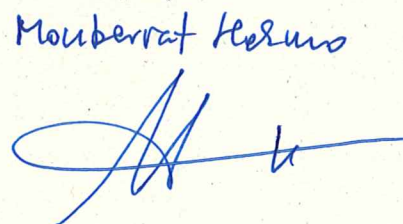 Monserrat Hermo